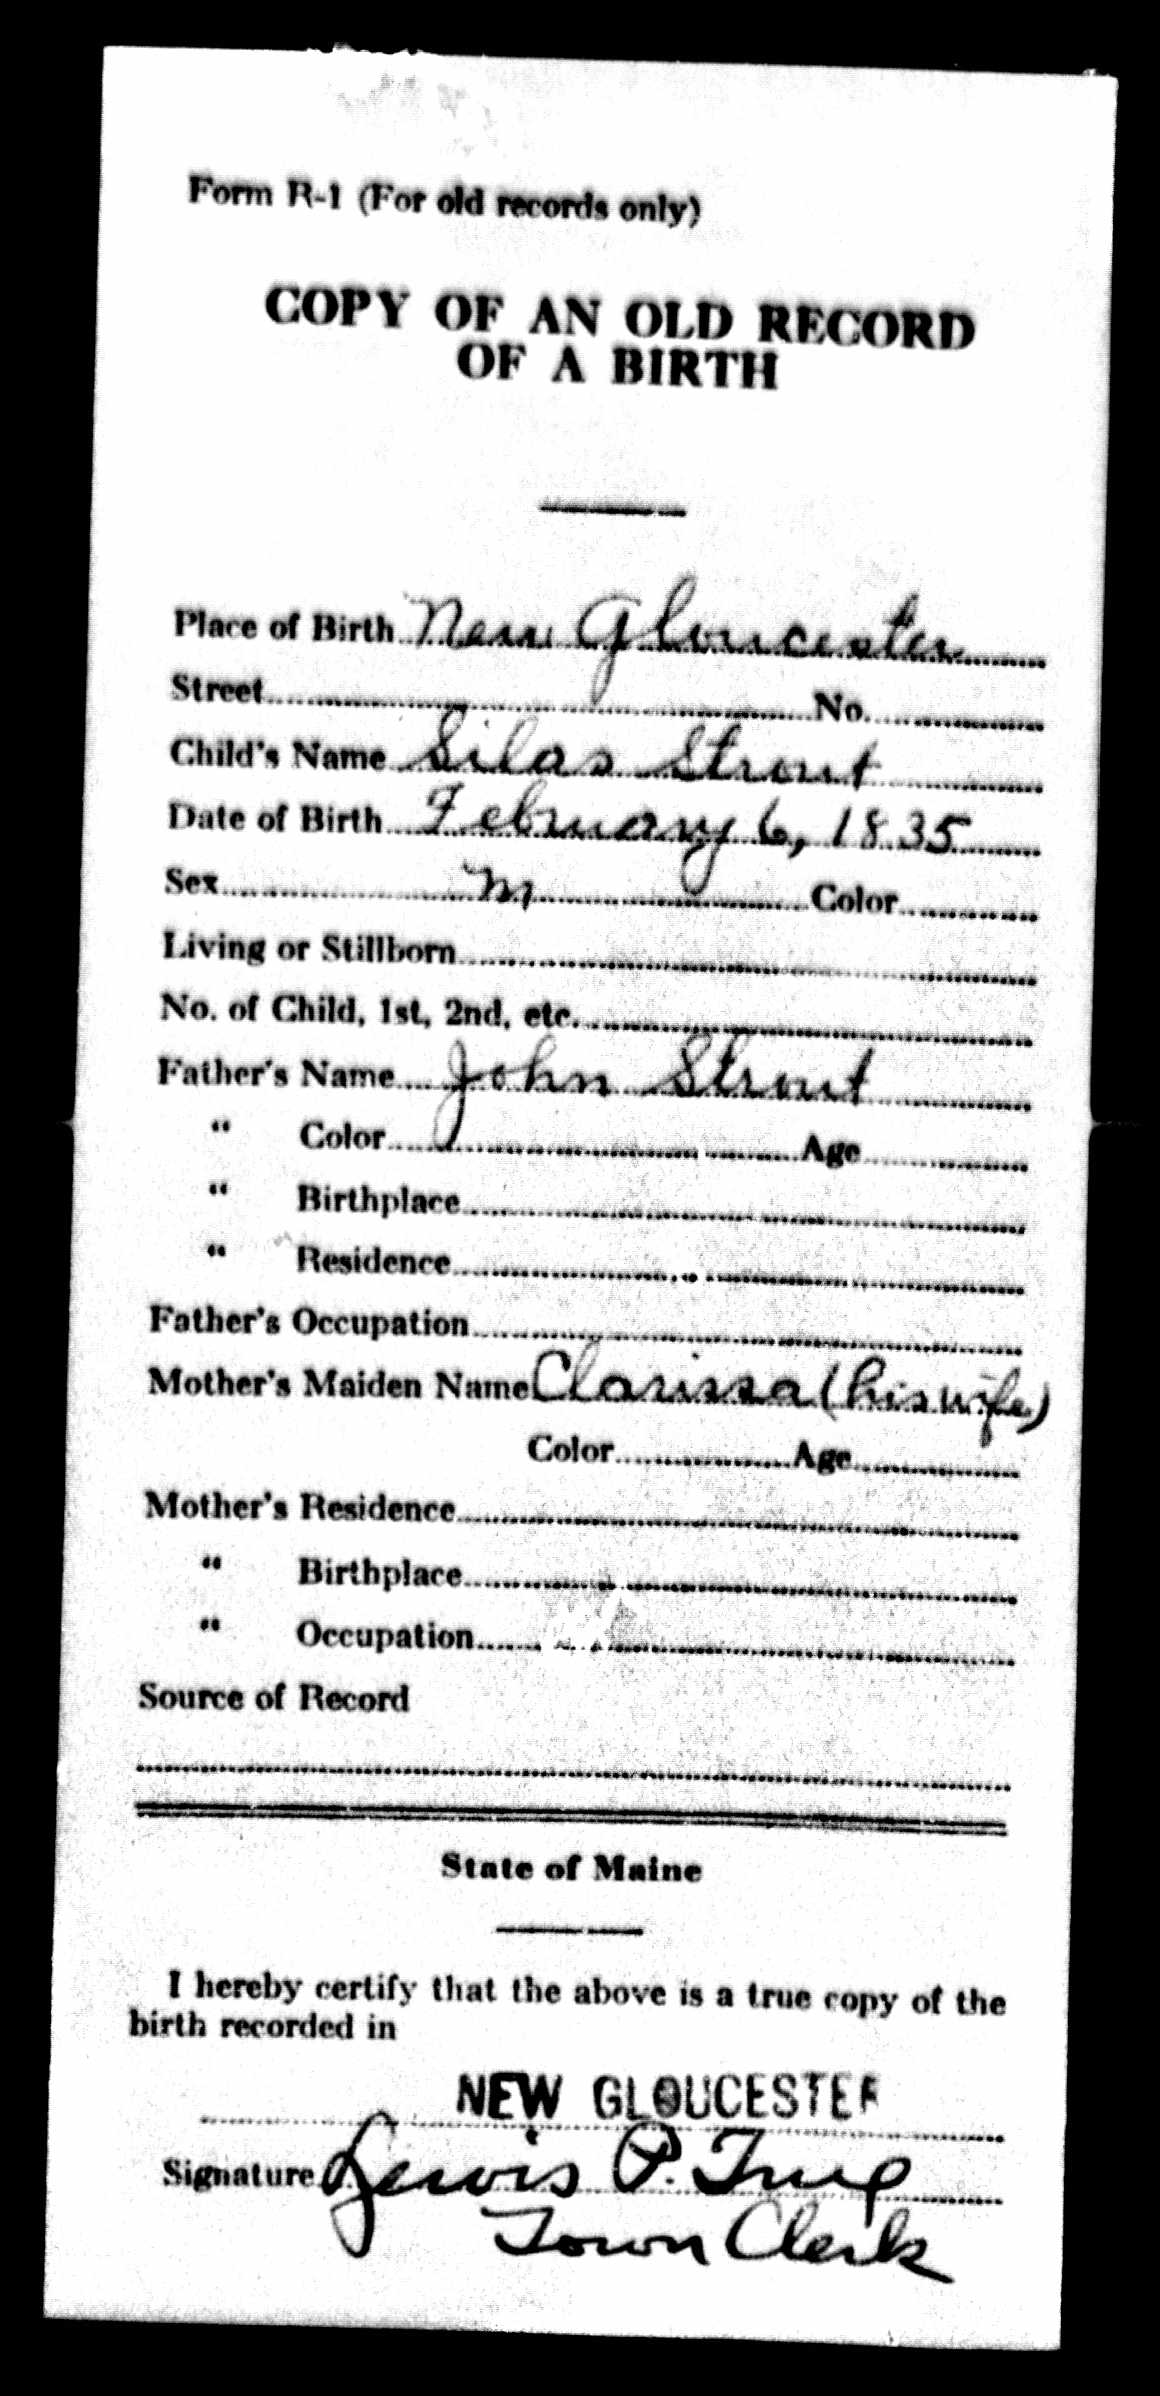 Form R-1 (For old records only)
COPY OF AN OLD RECORD
OF A BIRTH
Place of Birth New Gloucester
Street No.
Child's Name Silas Strout
Date of Birth February 6, 1835
Sex M Color
Living or Stillborn
No. of Child, 1st, 2nd, etc.
Father's Name John Strout
" Color Age
" Birthplace
" Residence
Father's Occupation
Mother's Maiden Name Clarissa (his wife)
Color Age
Mother's Residence
" Birthplace
" Occupation
Source of Record
State of Maine
I hereby certify that the above is a true copy of the
birth recorded in
NEW GLOUCESTER
Signature Lewis P. True
Town Clerk